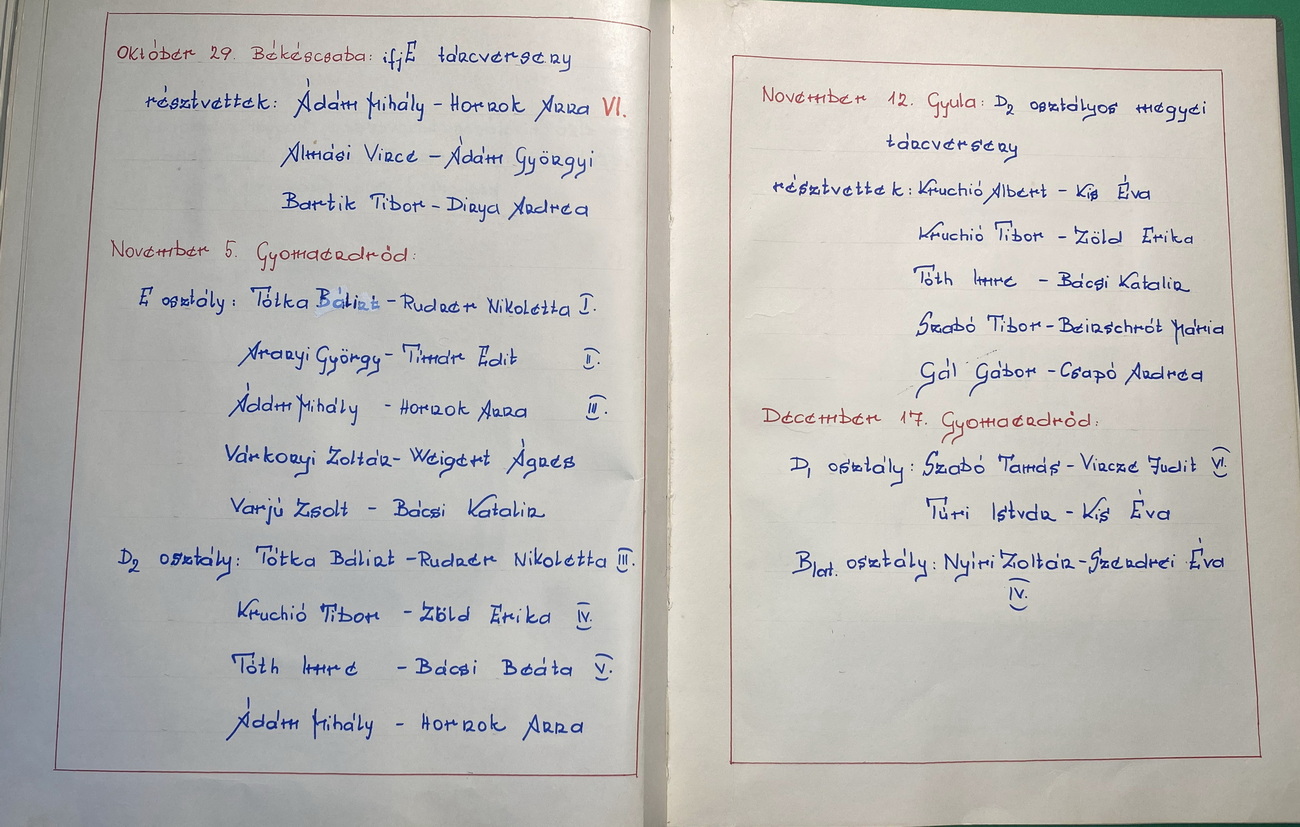 Október 29. Békéscsaba: ifjE táncverseny
résztvettek: Ádám Mihály - Hornok Anna VI.
Almási Vince - Ádám Györgyi
Bartik Tibor - Dinya Andrea
November 5. Gyomaendrőd:
E osztály: Tótka Bálint - Rudner Nikoletta I.
Aranyi György - Tímár Edit II.
Ádám Mihály - Hornok Anna III.
Várkonyi Zoltán - Weigert Ágnes
Varjú Zsolt - Bácsi Katalin
D2 osztály: Tótka Bálint - Rudner Nikoletta III.
Kruchió Tibor - Zöld Erika IV.
Tóth Imre - Bácsi Beáta V.
Ádám Mihály - Hornok Anna
November 12. Gyula: D2 osztályos megyei
táncverseny
résztvettek: Kruchió Albert - Kis Éva
Kruchió Tibor - Zöld Erika
Tóth Imre - Bácsi Katalin
Szabó Tibor - Beinschrót Mária
Gál Gábor - Csapó Andrea
December 17. Gyomaendrőd:
D1 osztály: Szabó Tamás - Vincze Judit VI.
Túri István - Kis Éva
Blat. osztály: Nyíri Zoltán - Szendrei Éva
IV.